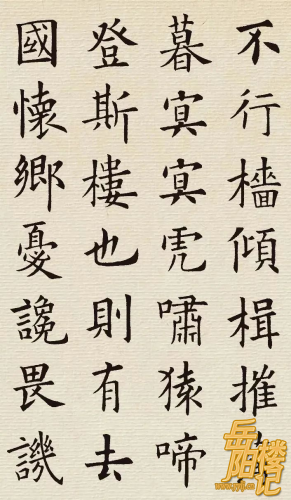 不行檣傾楫摧
暮冥冥虎嘯猿啼
登斯樓也則有去
國懷鄉憂讒畏譏
岳阳楼记